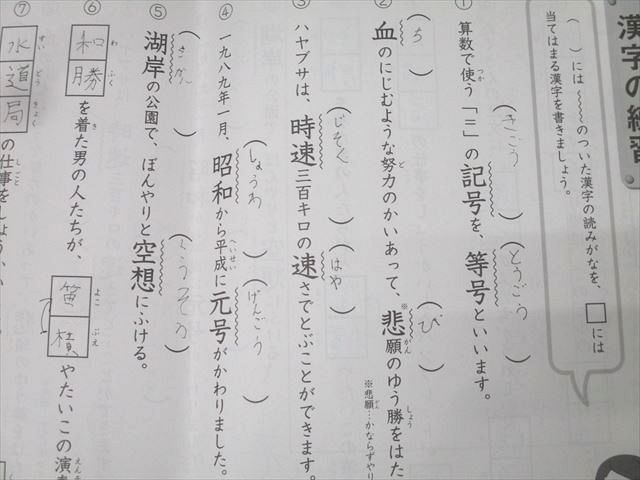 漢字の練習
（　）には〜〜〜のついた漢字の読みがなを、□には
当てはまる漢字を書きましょう。
① 算数で使う「＝」の記号を、等号といいます。
つか
（きごう）（とうごう）
② 血のにじむような努力のかいあって、※悲願のゆう勝をはた
ど がん しょう
（ち）（ひ）
※悲願…かならずやり
がん
③ ハヤブサは、時速三百キロの速さでとぶことができます。
（じそく）（はや）
④ 一九八九年一月、昭和から平成に元号がかわりました。
へいせい
（しょうわ）（げんごう）
⑤ 湖岸の公園で、ぼんやりと空想にふける。
（こがん）（くうそう）
⑥ 和勝を着た男の人たちが、笛横やたいこの演
わ ふく き よこ ぶえ えん
⑦ 水道局の仕事をしよう
すい どう きょく しごと